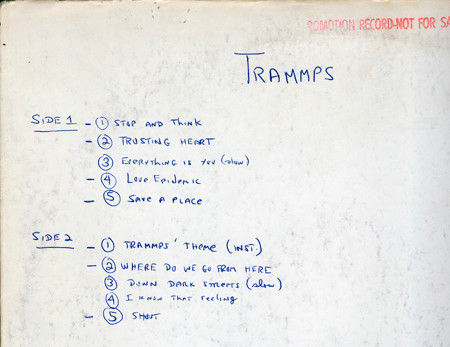 PROMOTION RECORD-NOT FOR SA
TRAMMPS
SIDE 1 - ① STOP AND THINK
- ② TRUSTING HEART
③ EVERYTHING IS YOU (slow)
- ④ LOVE EPIDEMIC
- ⑤ SAVE A PLACE
SIDE 2 - ① TRAMMPS' THEME (INST.)
- ② WHERE DO WE GO FROM HERE
③ DOWN DARK STREETS (slow)
④ I KNOW THAT FEELING
- ⑤ SHOUT